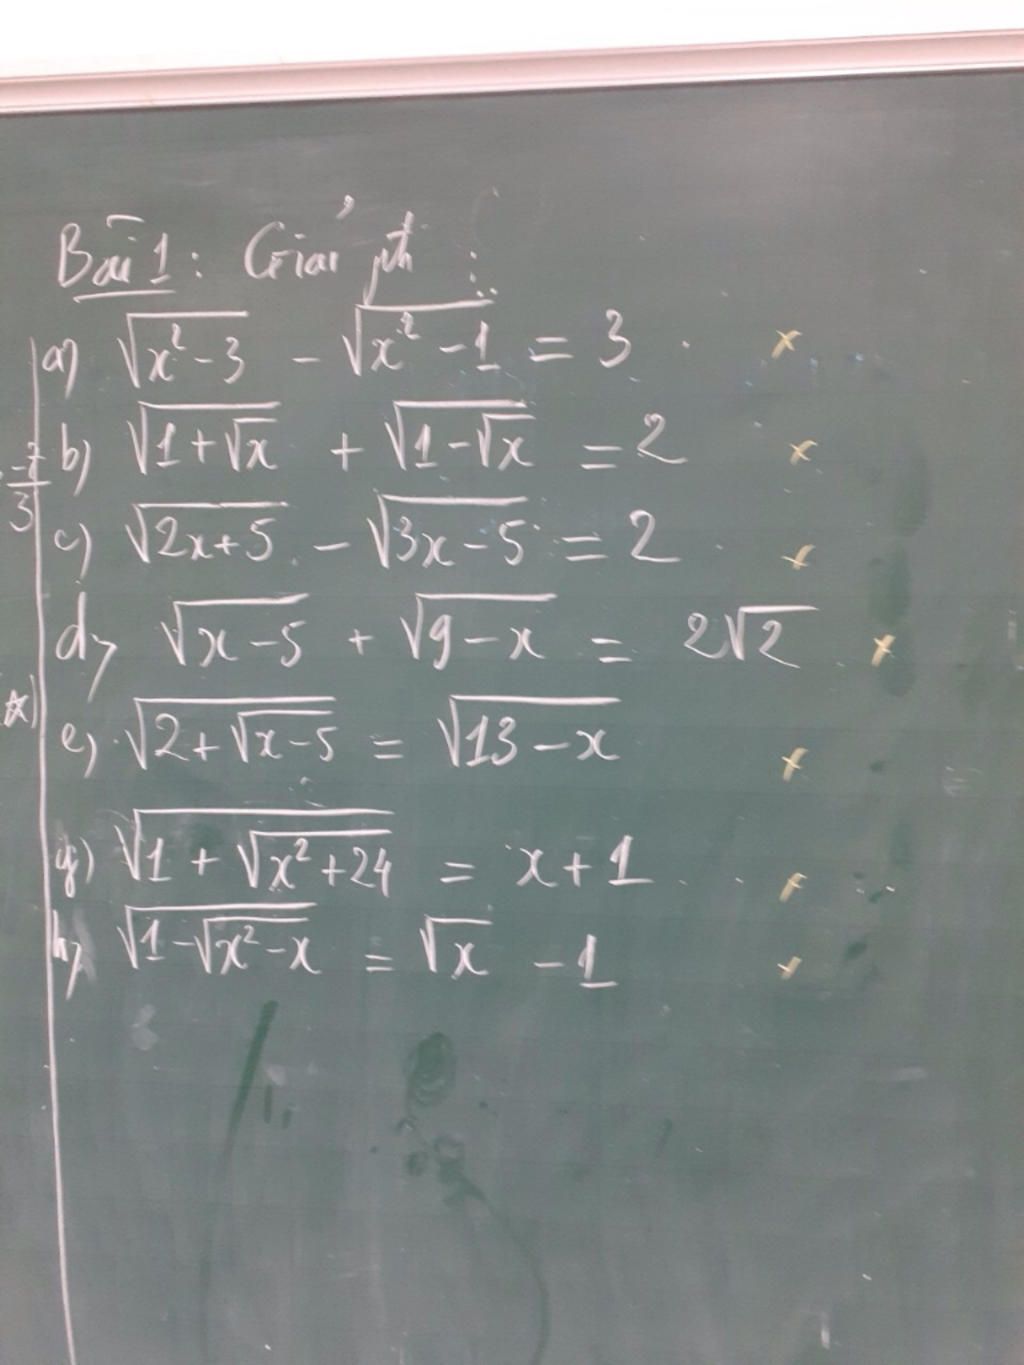 Bài 1: Giải pt :
a) √(x²-3) - √(x²-1) = 3
b) √(1+√x) + √(1-√x) = 2
c) √(2x+5) - √(3x-5) = 2
d) √(x-5) + √(9-x) = 2√2
e) √(2+√(x-5)) = √(13-x)
g) √(1+√(x²+24)) = x+1
h) √(1-√(x²-x)) = √x - 1